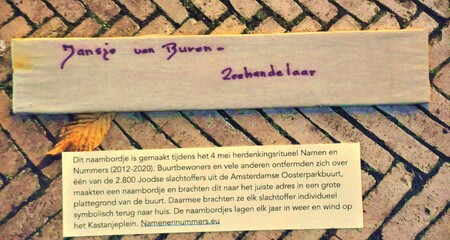 Jansje van Buren -
Zeehandelaar
Dit naambordje is gemaakt tijdens het 4 mei herdenkingsritueel Namen en
Nummers (2012-2020). Buurtbewoners en vele anderen ontfermden zich over
één van de 2.800 Joodse slachtoffers uit de Amsterdamse Oosterparkbuurt,
maakten een naambordje en brachten dit naar het juiste adres in een grote
plattegrond van de buurt. Daarmee brachten ze elk slachtoffer individueel
symbolisch terug naar huis. De naambordjes lagen elk jaar in weer en wind op
het Kastanjeplein. Namenennummers.eu